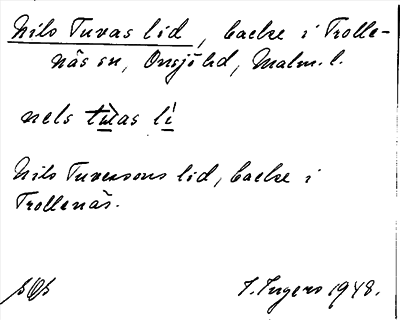 Nils Tuvas lid, backe i Trolle-
näs sn, Onsjö hd, Malm. l.
nels tùas lí
Nils Tuvessons lid, backe i
Trollenäs.
I. Ingers 1948.